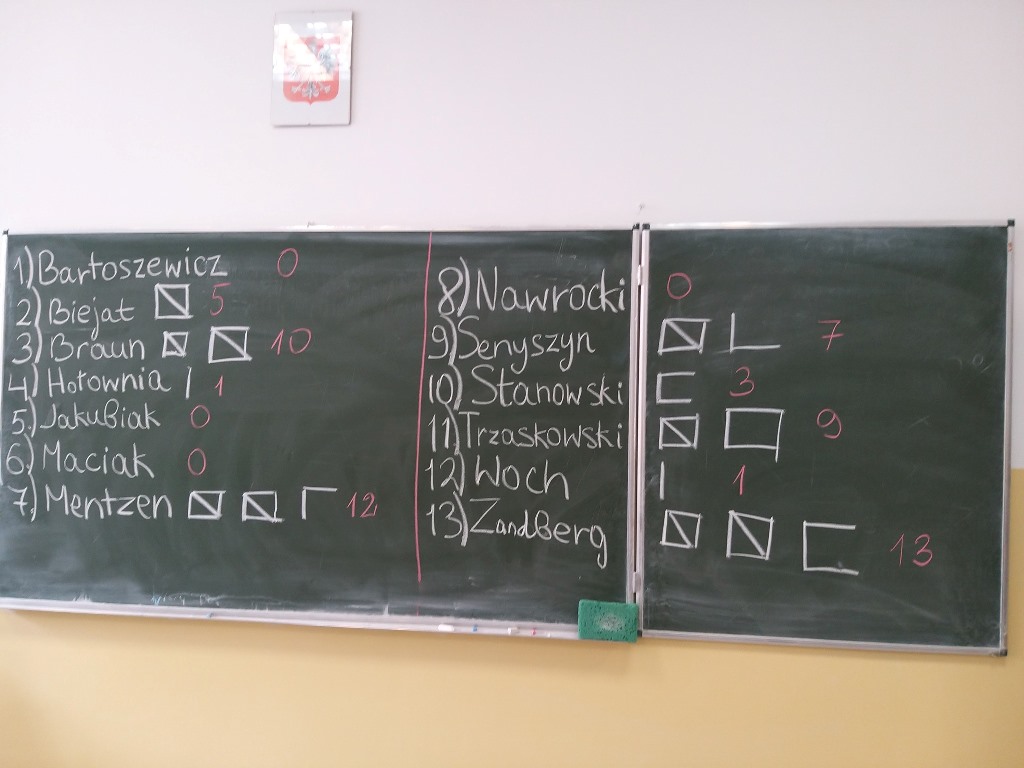 1) Bartoszewicz 0
2) Biejat 5
3) Braun 10
4) Hołownia 1
5.) Jakubiak 0
6.) Maciak 0
7.) Mentzen 12
8) Nawrocki 0
9) Senyszyn 7
10) Stanowski 3
11) Trzaskowski 9
12) Woch 1
13) Zandberg 13